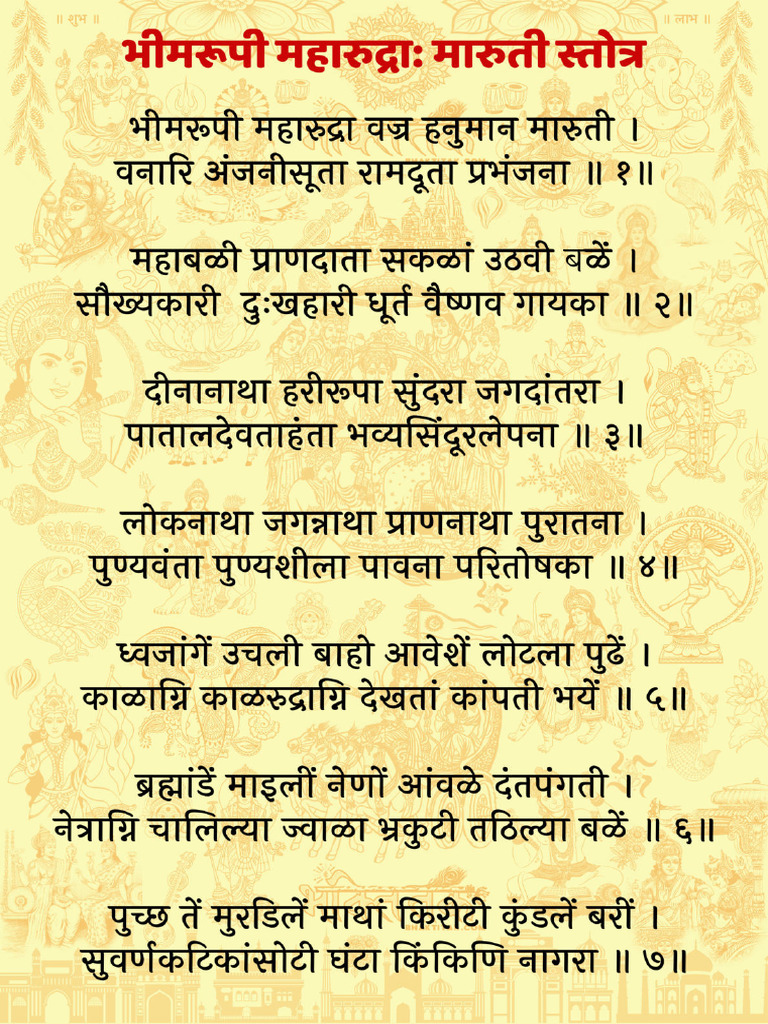 ॥ शुभ ॥
॥ लाभ ॥
भीमरूपी महारुद्रा: मारुती स्तोत्र
भीमरूपी महारुद्रा वज्र हनुमान मारुती ।
वनारि अंजनीसूता रामदूता प्रभंजना ॥ १॥
महाबळी प्राणदाता सकळां उठवी बळें ।
सौख्यकारी दुःखहारी धूर्त वैष्णव गायका ॥ २॥
दीनानाथा हरीरूपा सुंदरा जगदांतरा ।
पातालदेवताहंता भव्यसिंदूरलेपना ॥ ३॥
लोकनाथा जगन्नाथा प्राणनाथा पुरातना ।
पुण्यवंता पुण्यशीला पावना परितोषका ॥ ४॥
ध्वजांगें उचली बाहो आवेशें लोटला पुढें ।
काळाग्नि काळरुद्राग्नि देखतां कांपती भयें ॥ ५॥
ब्रह्मांडें माइलीं नेणों आंवळे दंतपंगती ।
नेत्राग्नि चालिल्या ज्वाळा भ्रकुटी तठिल्या बळें ॥ ६॥
पुच्छ तें मुरडिलें माथां किरीटी कुंडलें बरीं ।
सुवर्णकटिकांसोटी घंटा किंकिणि नागरा ॥ ७॥